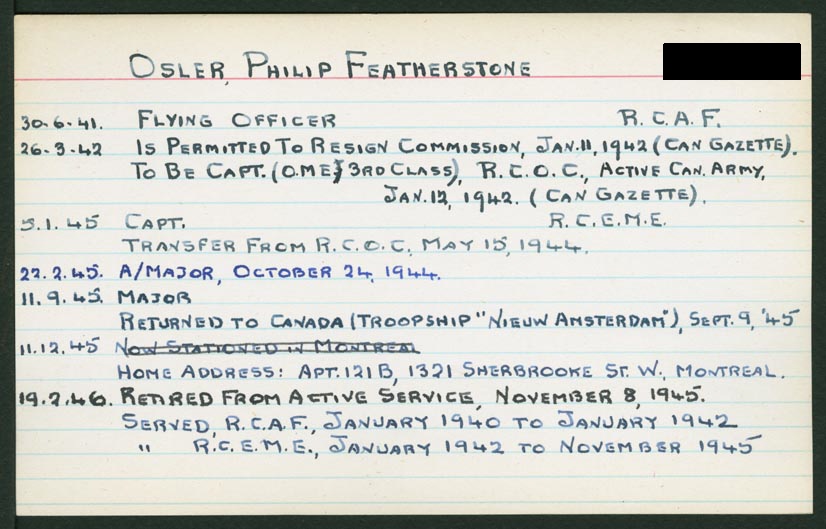 OSLER, PHILIP FEATHERSTONE
30.6.41. FLYING OFFICER R.C.A.F.
26.3.42 IS PERMITTED TO RESIGN COMMISSION, JAN.11, 1942 (CAN GAZETTE).
TO BE CAPT. (O.M.E, 3RD CLASS), R.C.O.C., ACTIVE CAN. ARMY,
JAN.12, 1942. (CAN GAZETTE).
5.1.45 CAPT. R.C.E.M.E.
TRANSFER FROM R.C.O.C. MAY 15, 1944.
22.2.45. A/MAJOR, OCTOBER 24, 1944.
11.9.45. MAJOR
RETURNED TO CANADA (TROOPSHIP "NIEUW AMSTERDAM"), SEPT. 9, '45
11.12.45 NOW STATIONED IN MONTREAL
HOME ADDRESS: APT. 121B, 1321 SHERBROOKE ST. W., MONTREAL.
19.2.46. RETIRED FROM ACTIVE SERVICE, NOVEMBER 8, 1945.
SERVED, R.C.A.F., JANUARY 1940 TO JANUARY 1942
" R.C.E.M.E., JANUARY 1942 TO NOVEMBER 1945